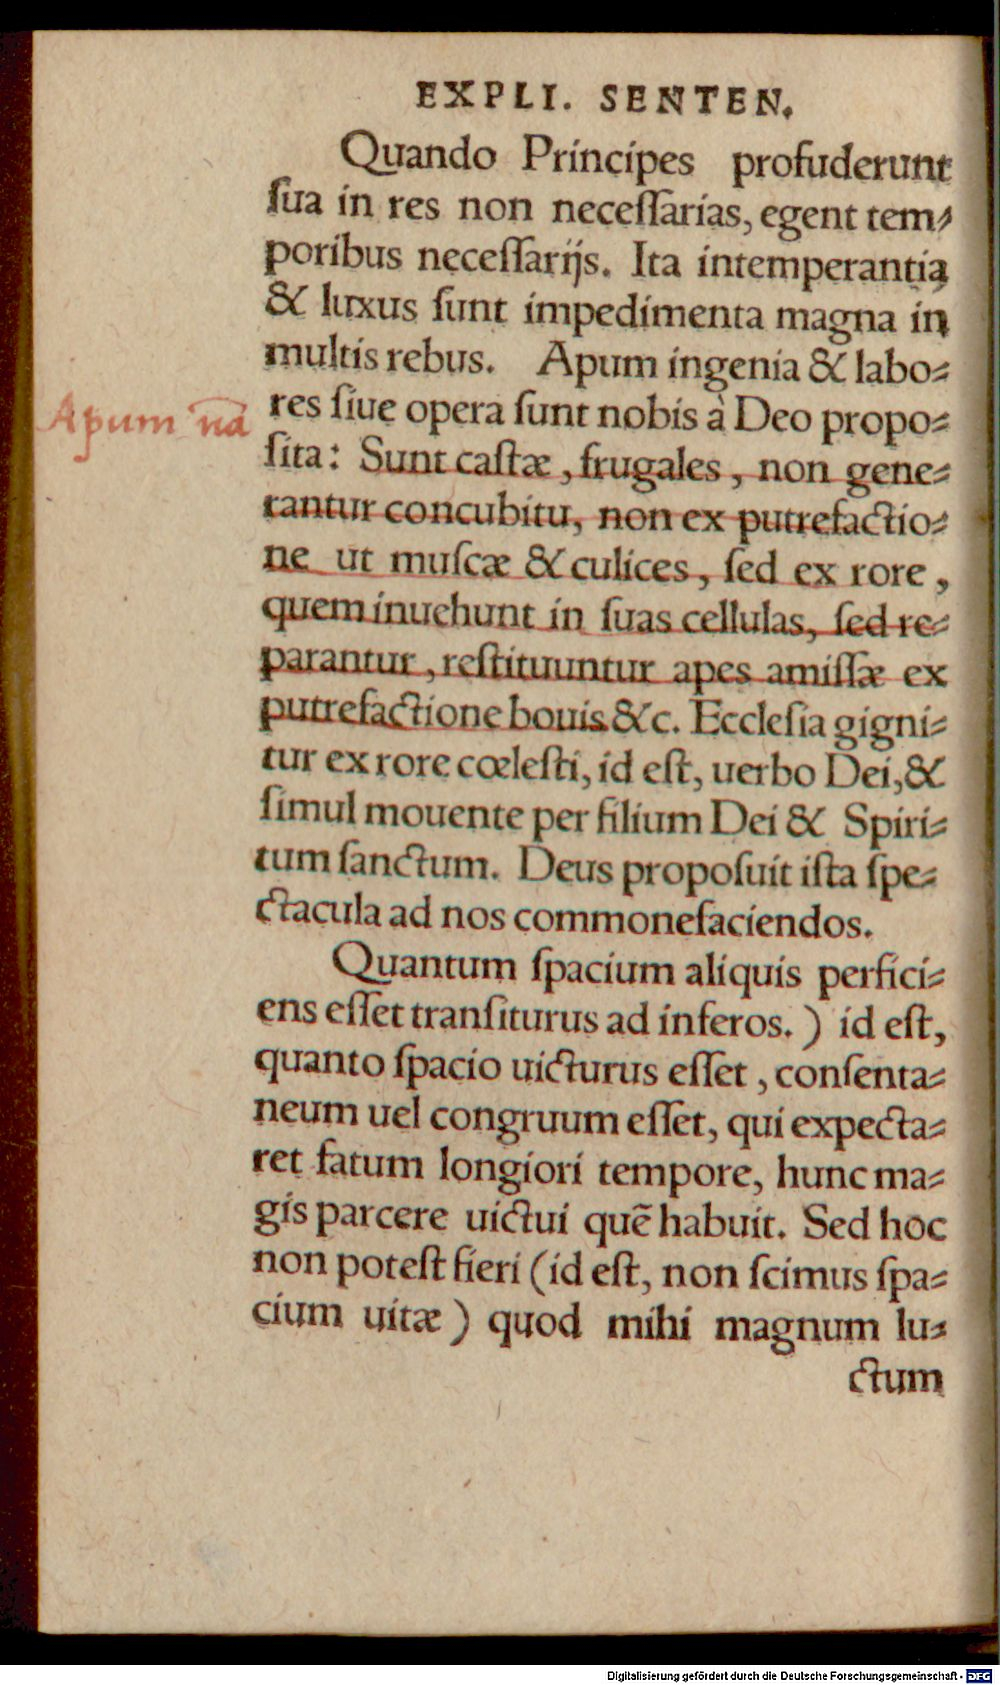 EXPLI. SENTEN.
Quando Principes profuderunt
ſua in res non neceſſarias, egent tem⸗
poribus neceſſarijs. Ita intemperantia
& luxus ſunt impedimenta magna in
multis rebus. Apum ingenia & labo⸗
res ſiue opera ſunt nobis à Deo propo⸗
Apum nã
ſita: Sunt caſtæ, frugales, non gene⸗
rantur concubitu, non ex putrefactio⸗
ne ut muſcæ & culices, ſed ex rore,
quem inuehunt in ſuas cellulas, ſed re⸗
parantur, reſtituuntur apes amiſſæ ex
putrefactione bouis &c. Eccleſia gigni⸗
tur ex rore cœleſti, id eſt, uerbo Dei, &
ſimul mouente per filium Dei & Spiri⸗
tum ſanctum. Deus propoſuit iſta ſpe⸗
ctacula ad nos commonefaciendos.
Quantum ſpacium aliquis perfici⸗
ens eſſet tranſiturus ad inferos.) id eſt,
quanto ſpacio uicturus eſſet, conſenta⸗
neum uel congruum eſſet, qui expecta⸗
ret fatum longiori tempore, hunc ma⸗
gis parcere uictui quẽ habuit. Sed hoc
non poteſt fieri (id eſt, non ſcimus ſpa⸗
cium uitæ) quod mihi magnum lu⸗
ctum
Digitalisierung gefördert durch die Deutsche Forschungsgemeinschaft - DFG